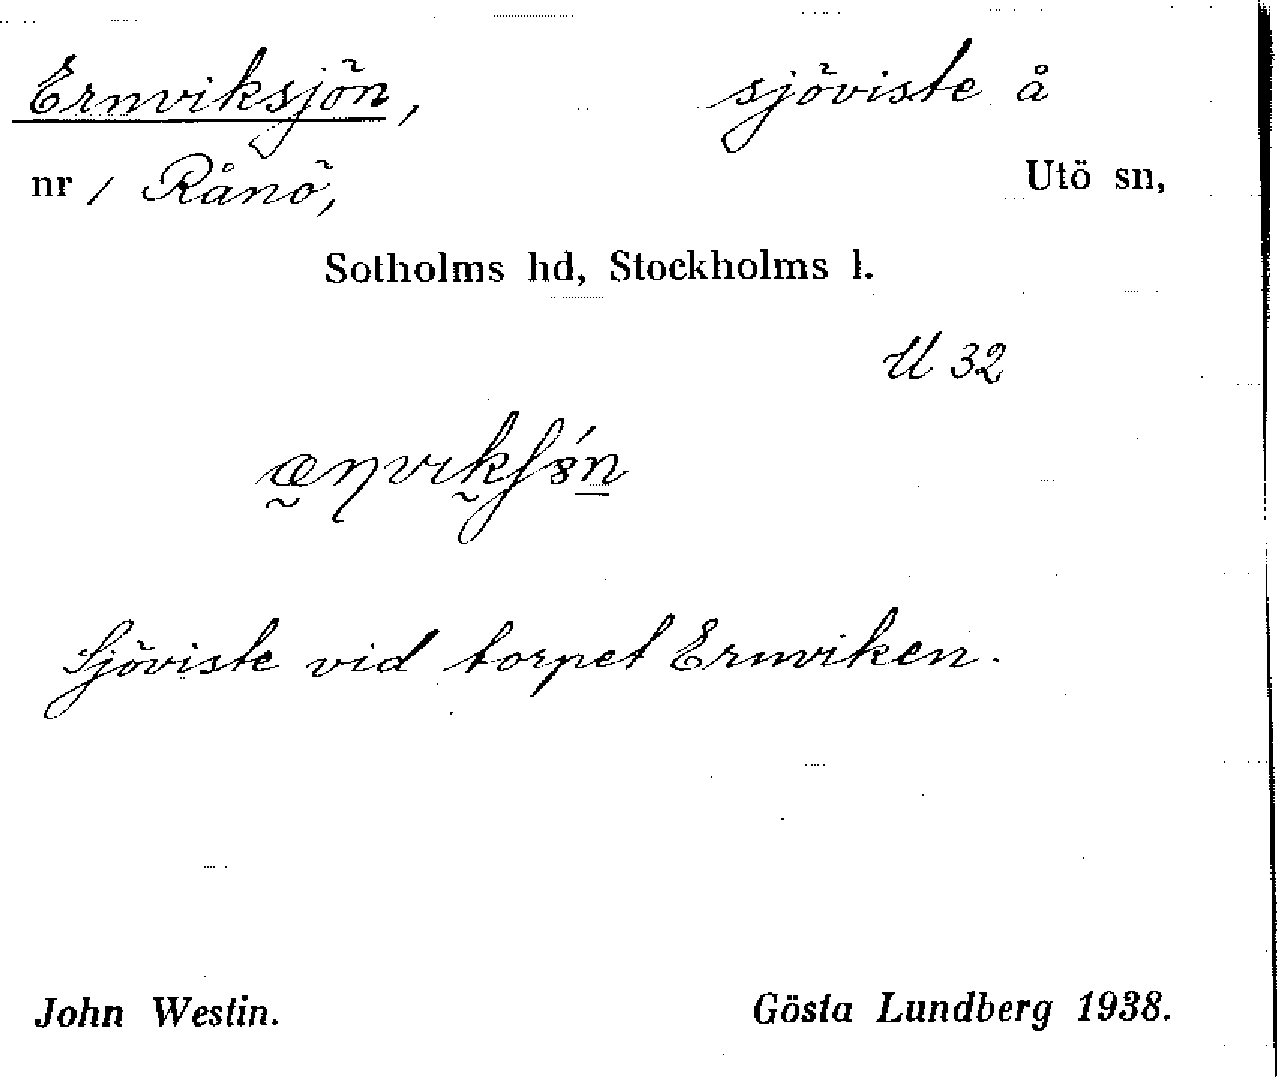 Ermviksjön, sjöviste å
nr 1 Rånö, Utö sn,
Sotholms hd, Stockholms l.
U 32
Sjöviste vid torpet Ermviken.
John Westin. Gösta Lundberg 1938.